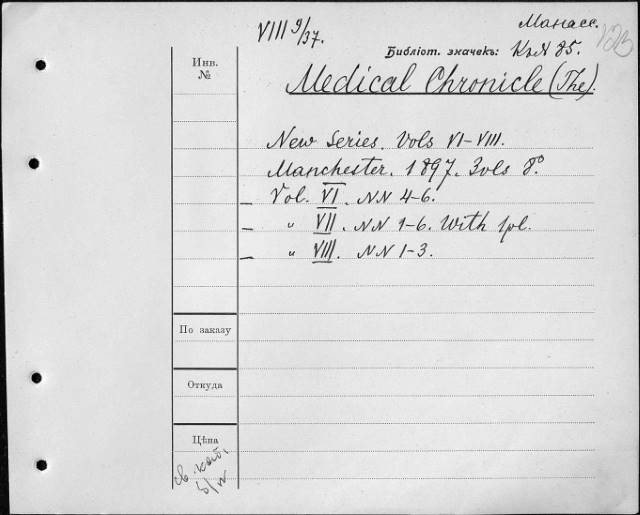 VIII 9/37.
Манасс.
Инв.
№
Библіот. значекъ: КхѦ 85.
Medical Chronicle (The).
New Series. Vols VI–VIII.
Manchester. 1897. 3 vls 8°
— Vol. VI. NN 4–6.
— " VII. NN 1–6. With 1 pl.
— " VIII. NN 1–3.
По заказу
Откуда
Цѣна
св. каб.